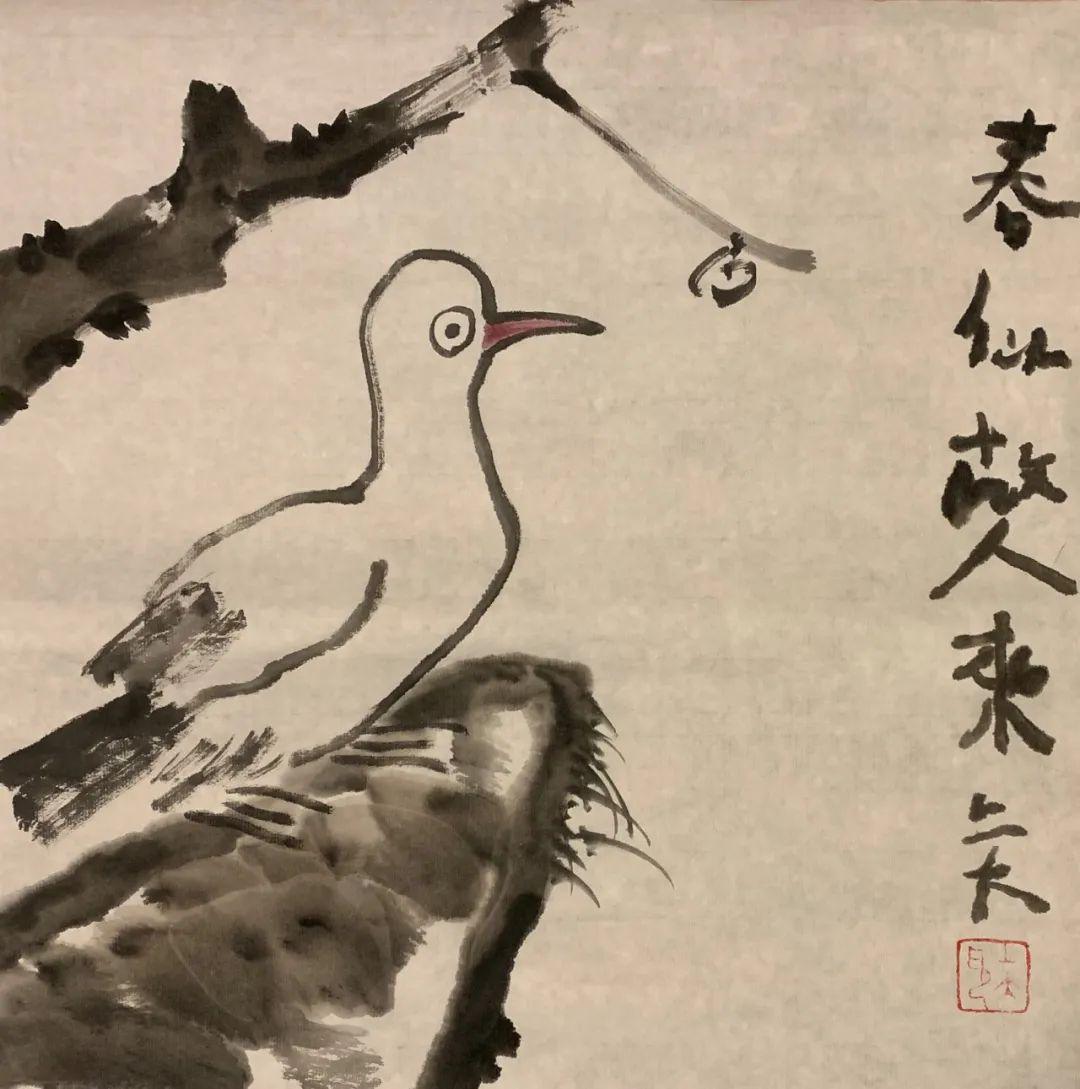 春似故人來